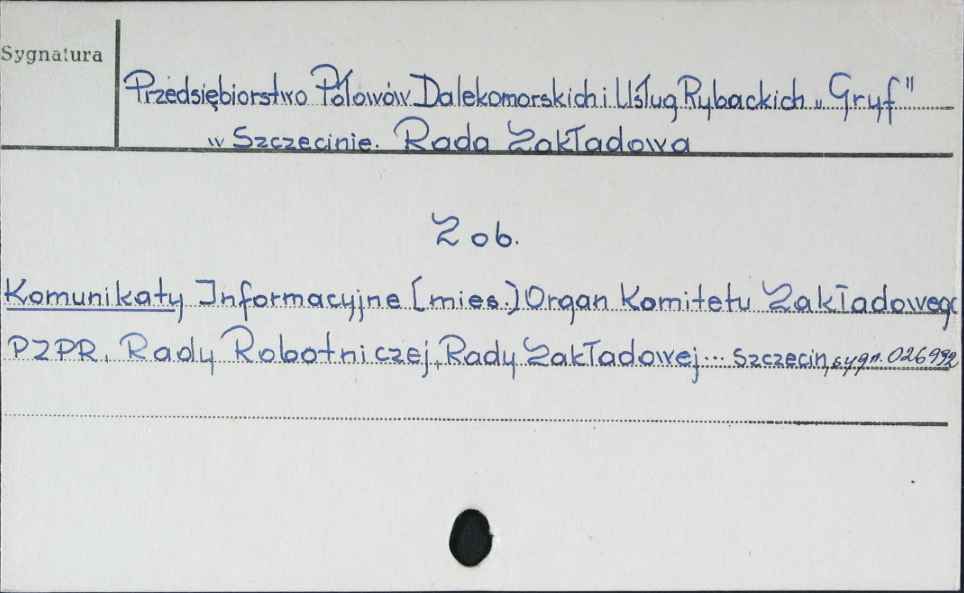 Sygnatura
Przedsiębiorstwo Połowów Dalekomorskich i Usług Rybackich „Gryf”
w Szczecinie. Rada Zakładowa
Zob.
Komunikaty Informacyjne [mies.] Organ Komitetu Zakładowego
PZPR, Rady Robotniczej, Rady Zakładowej... Szczecin, sygn. 026992